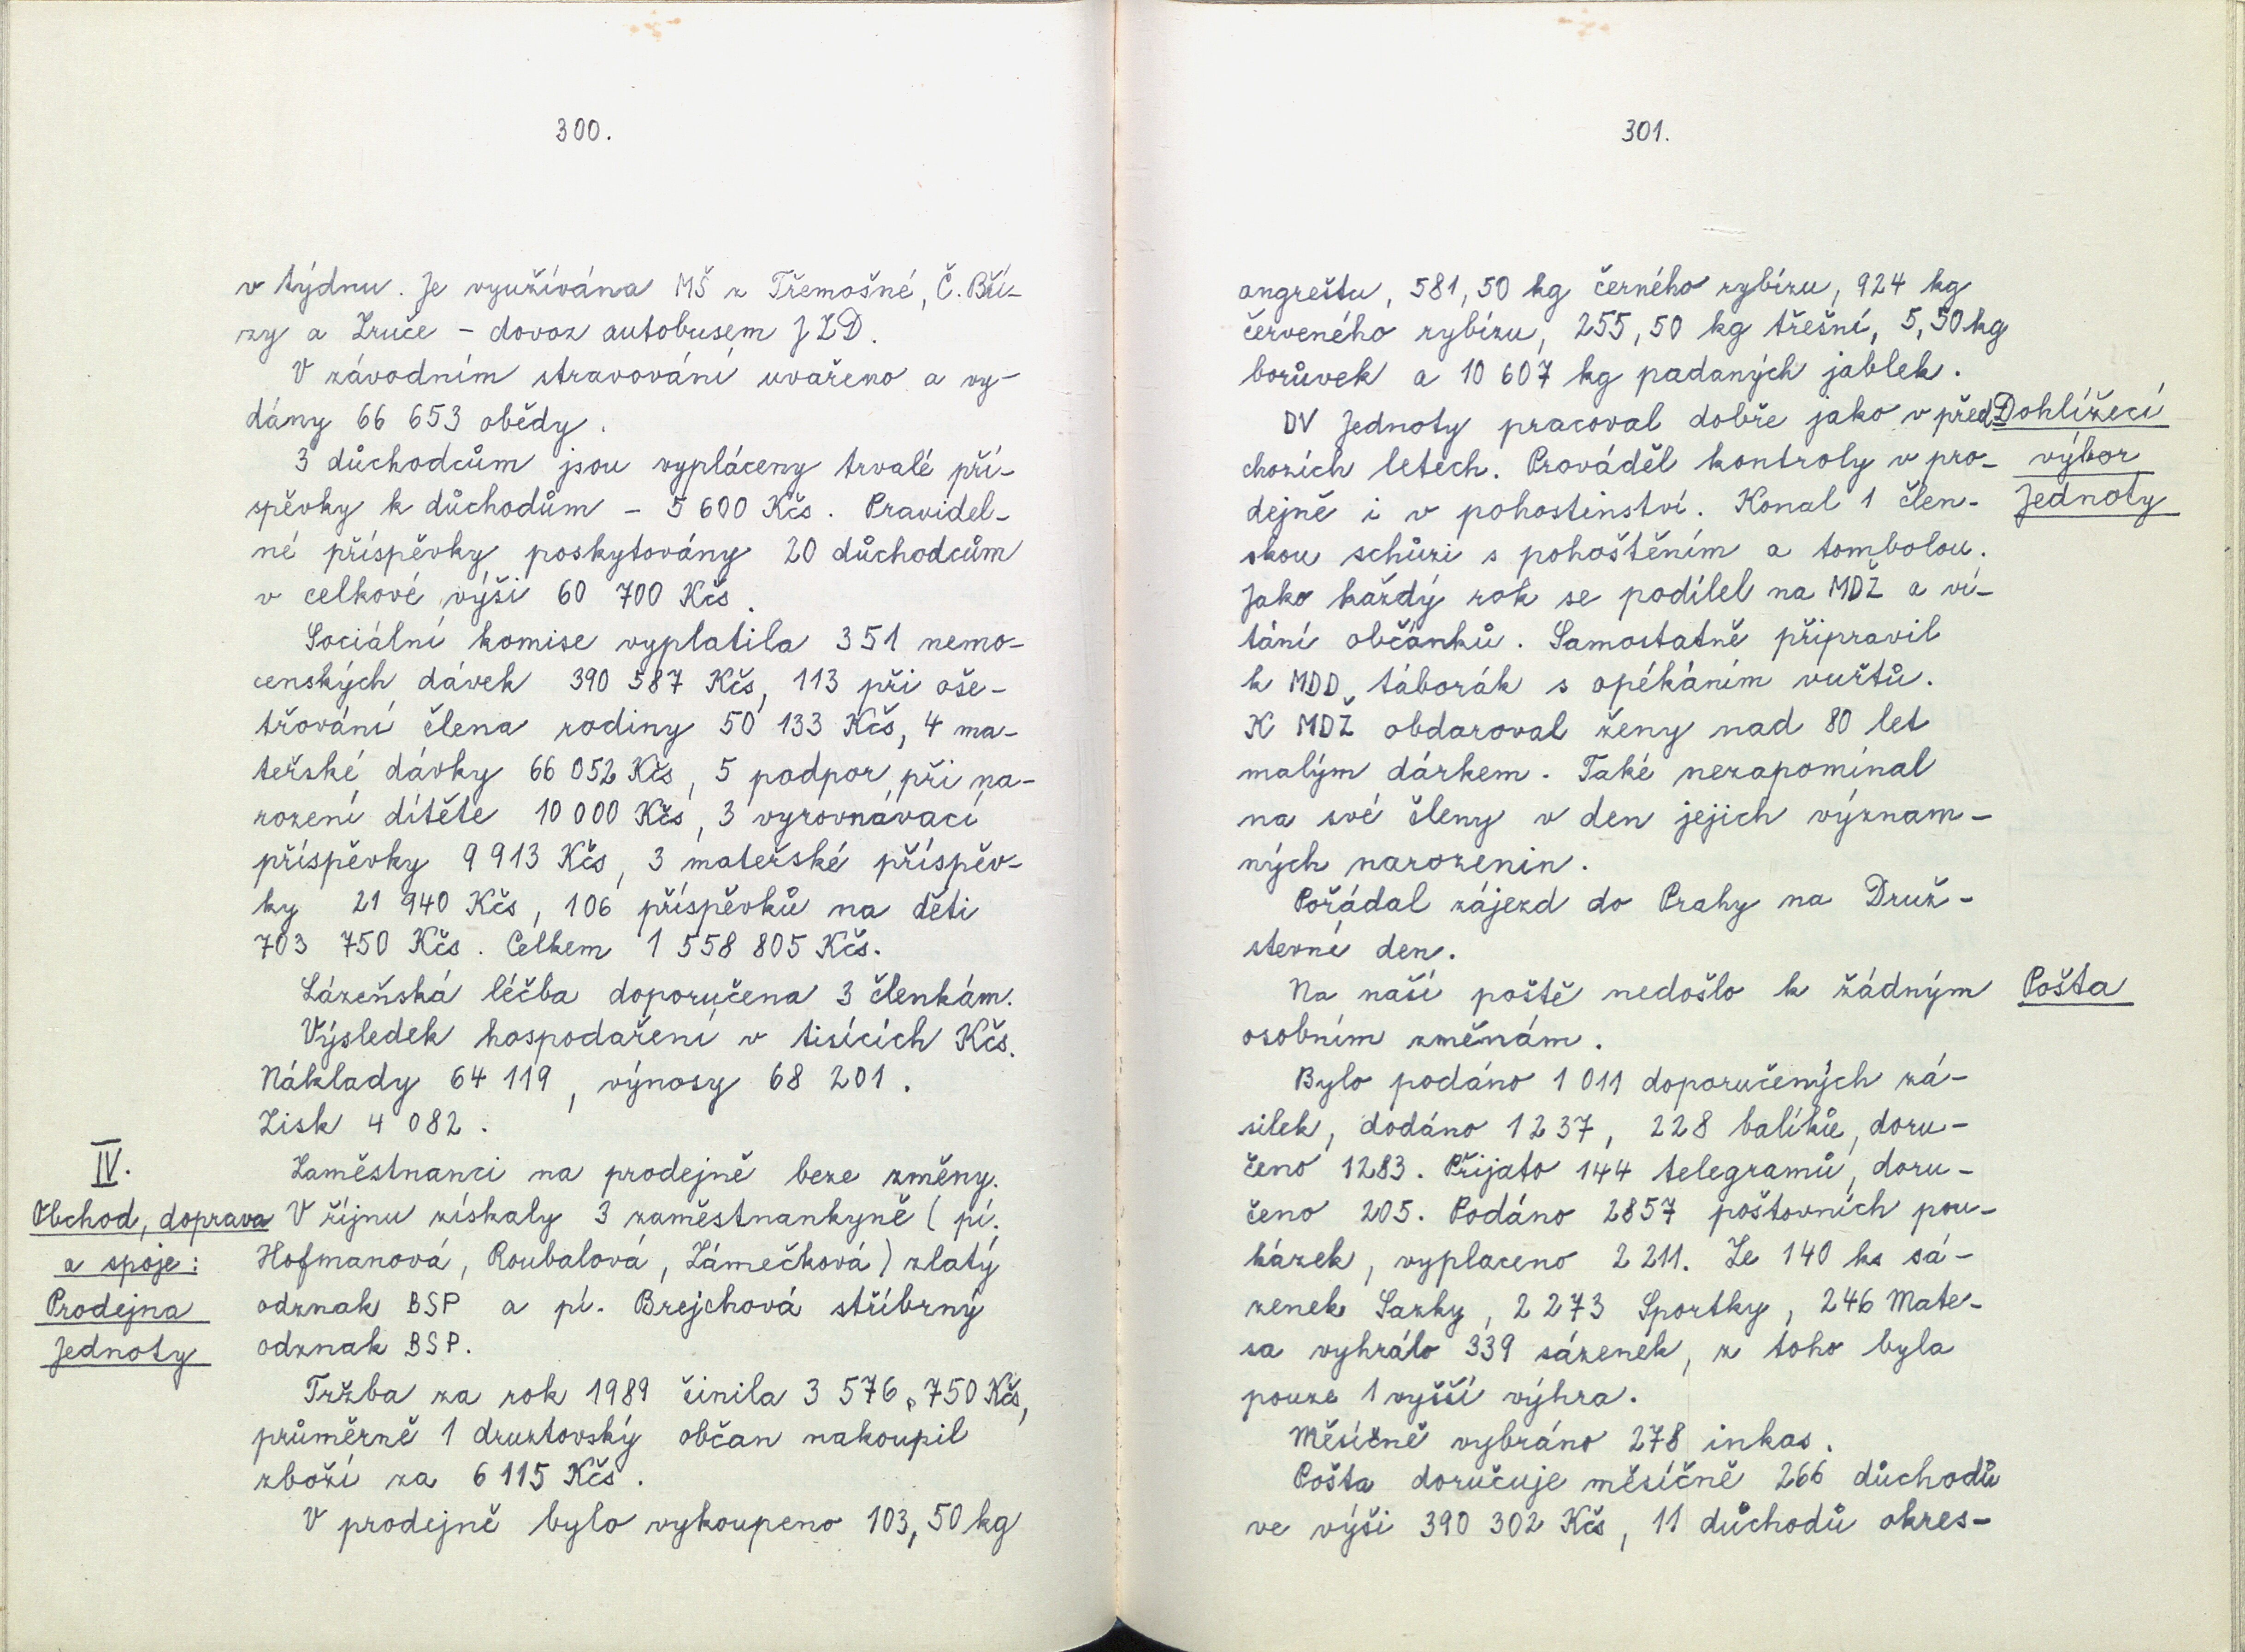 300.
v týdnu. Je využívána MŠ z Třemošné, Č. Bří-
zy a Zruče - dovoz autobusem JZD.
V závodním stravování uvařeno a vy-
dány 66 653 obědy.
3 důchodcům jsou vypláceny trvalé pří-
spěvky k důchodům - 5 600 Kčs. Pravidel-
né příspěvky poskytovány 20 důchodcům
v celkové výši 60 700 Kčs.
Sociální komise vyplatila 351 nemo-
cenských dávek 390 587 Kčs, 113 při oše-
třování člena rodiny 50 133 Kčs, 4 ma-
teřské dávky 66 052 Kčs, 5 podpor při na-
rození dítěte 10 000 Kčs, 3 vyrovnávací
příspěvky 9 913 Kčs, 3 mateřské příspěv-
ky 21 940 Kčs, 106 příspěvků na děti
703 750 Kčs. Celkem 1 558 805 Kčs.
Lázeňská léčba doporučena 3 členkám.
Výsledek hospodaření v tisících Kčs.
Náklady 64 119, výnosy 68 201.
Zisk 4 082.
IV.
Obchod, doprava
a spoje:
Prodejna
Jednoty
Zaměstnanci na prodejně beze změny.
V říjnu získaly 3 zaměstnankyně (pí.
Hofmanová, Roubalová, Zámečková) zlatý
odznak BSP a pí. Brejchová stříbrný
odznak BSP.
Tržba za rok 1989 činila 3 576.750 Kčs,
průměrně 1 druztovský občan nakoupil
zboží za 6 115 Kčs.
V prodejně bylo vykoupeno 103,50 kg
301.
angreštu, 581,50 kg černého rybízu, 924 kg
červeného rybízu, 255,50 kg třešní, 5,50 kg
borůvek a 10 607 kg padaných jablek.
DV Jednoty pracoval dobře jako v před
chozích letech. Prováděl kontroly v pro-
dejně i v pohostinství. Konal 1 člen-
skou schůzi s pohoštěním a tombolou.
Jako každý rok se podílel na MDŽ a ví-
tání občánků. Samostatně připravil
k MDD táborák s opékáním vuřtů.
K MDŽ obdaroval ženy nad 80 let
malým dárkem. Také nezapomínal
na své členy v den jejich význam-
ných narozenin.
Pořádal zájezd do Prahy na Druž-
stevní den.
Dohlížecí
výbor
Jednoty
Na naší poště nedošlo k žádným
osobním změnám.
Pošta
Bylo podáno 1 011 doporučených zá-
silek, dodáno 1 237, 228 balíků, doru-
čeno 1283. Přijato 144 telegramů, doru-
čeno 205. Podáno 2857 poštovních pou-
kázek, vyplaceno 2 211. Ze 140 ks sá-
zenek Sazky, 2 273 Sportky, 246 Mate-
sa vyhrálo 339 sázenek, z toho byla
pouze 1 vyšší výhra.
Měsíčně vybráno 278 inkas.
Pošta doručuje měsíčně 266 důchodů
ve výši 390 302 Kčs, 11 důchodů okres-